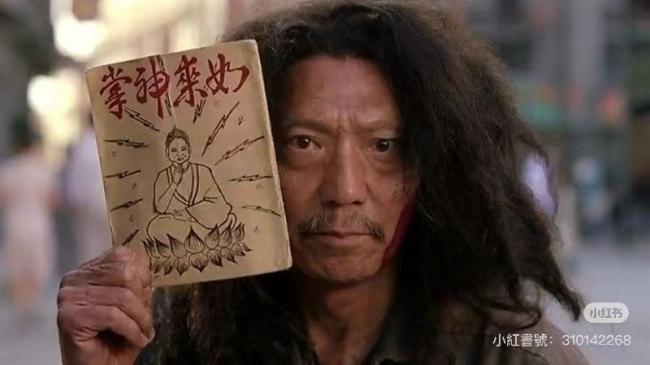 如來神掌
小红书
小紅書號: 310142268